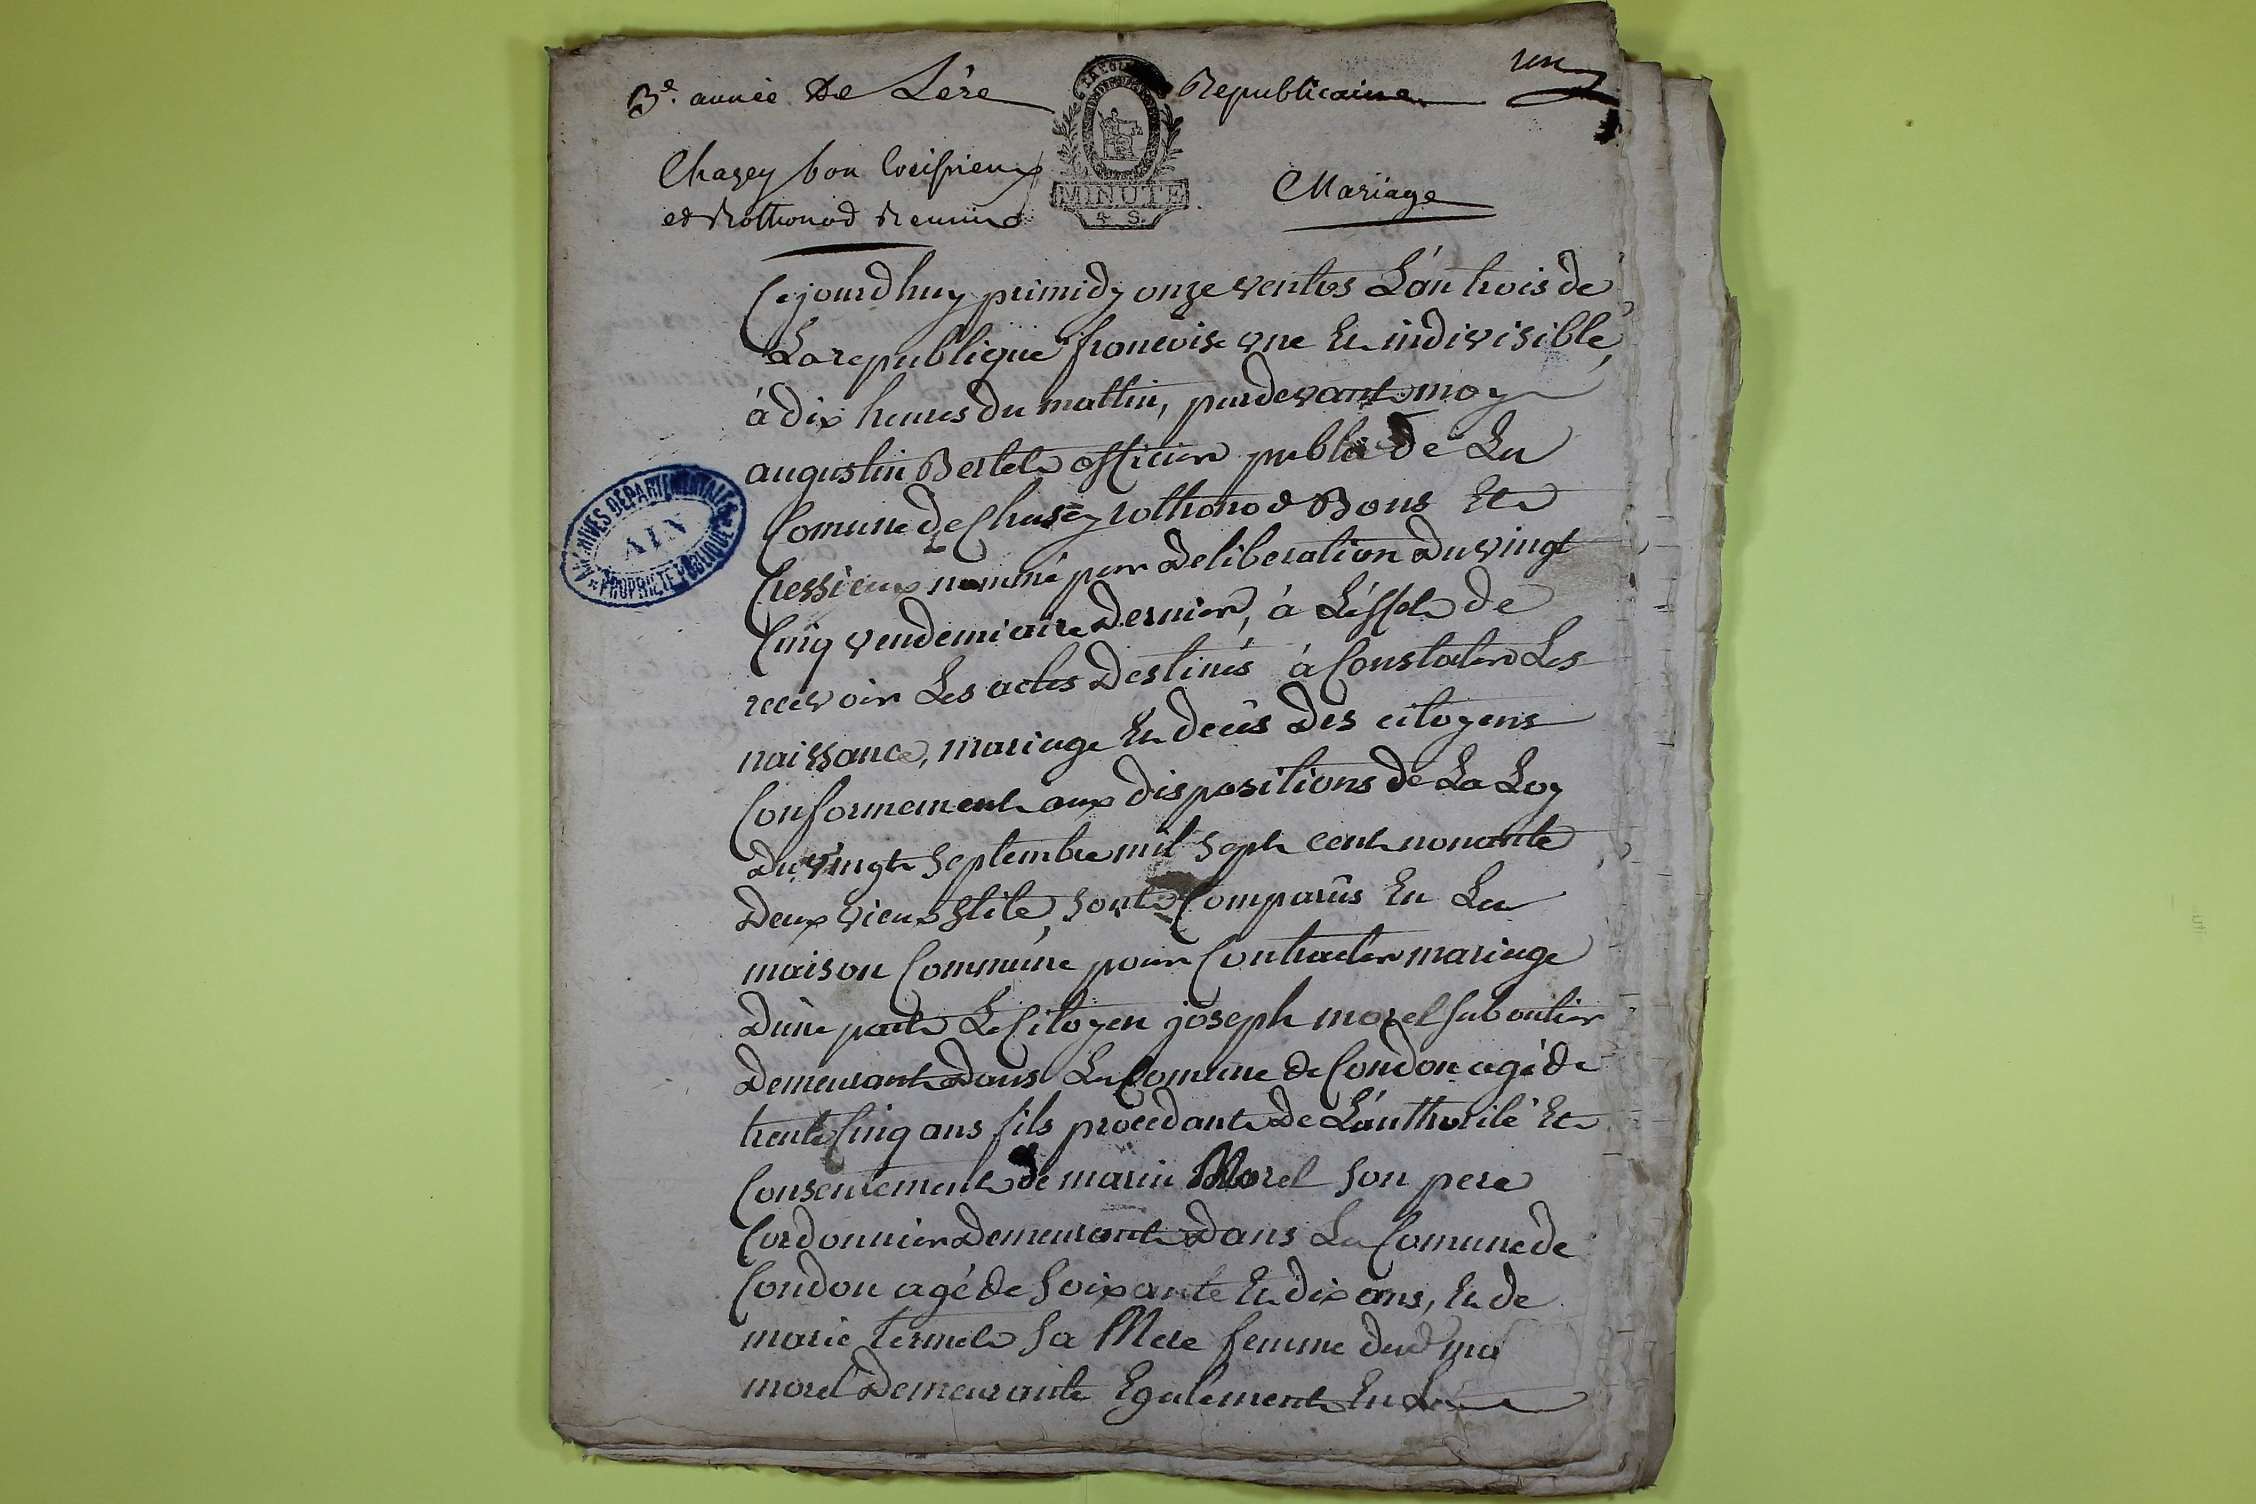 3e. année De Lére Republicaine
un
Chazey bon Cressieux
et Rothonod Reunis
MINUTE
4 S.
Mariage
Cejourd'huy primidy onze ventos L'an trois de
La republique francoise une Et indivisible,
à dix heures du mattin, pardevant moy
augustin Bertet officier public de La
Comune de Chasey rothonod Bons Et
Cressieux nommé par Deliberation Du vingt
Cinq vendemiaire Dernier, à L'effet de
recevoir Les actes Destinés à Constater Les
naissance, mariage Et decès Des citoyens
Conformement aux dispositions de La Loy
Du vingt Septembre mil Sept cent nonante
Deux vieux Stile, Sont Comparûs En La
maison Commune pour Contracter mariage
D'une part Le Citoyen joseph morel Saboutier
Demeurant Dans La Comune de Condon agé de
trente Cinq ans fils procedant De L'authorité Et
Consentement de marin Morel Son pere
Cordonnier Demeurant Dans La Comune de
Condon agé de Soixante Et dix ans, Et de
marie termet Sa Mere femme dud ma
morel Demeurante Egalement En La
ARCHIVES DEPARTEMENTALES
AIN
PROPRIETE PUBLIQUE